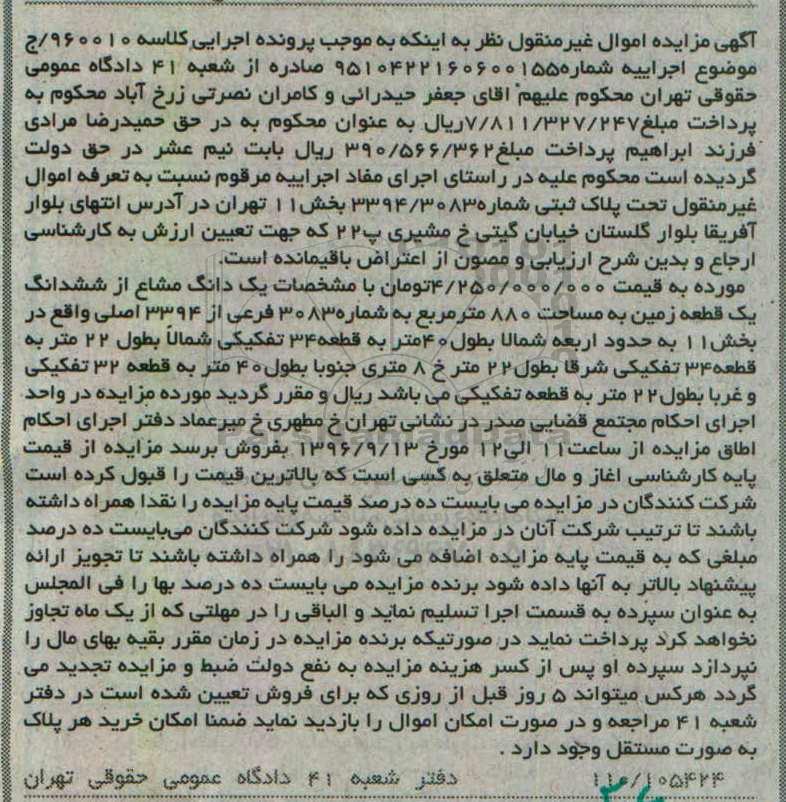 آگهی مزایده اموال غیرمنقول نظر به اینکه به موجب پرونده اجرایی کلاسه ۹۶۰۰۱۰/ج
موضوع اجراییه شماره۹۵۱۰۴۲۲۱۶۰۶۰۰۱۵۵ صادره از شعبه ۴۱ دادگاه عمومی
حقوقی تهران محکوم علیهم اقای جعفر حیدرائی و کامران نصرتی زرخ آباد محکوم به
پرداخت مبلغ۷/۸۱۱/۳۲۷/۲۴۷ریال به عنوان محکوم به در حق حمیدرضا مرادی
فرزند ابراهیم پرداخت مبلغ۳۹۰/۵۶۶/۳۶۲ ریال بابت نیم عشر در حق دولت
گردیده است محکوم علیه در راستای اجرای مفاد اجراییه مرقوم نسبت به تعرفه اموال
غیرمنقول تحت پلاک ثبتی شماره۳۳۹۴/۳۰۸۳ بخش۱۱ تهران در آدرس انتهای بلوار
آفریقا بلوار گلستان خیابان گیتی خ مشیری پ۲۲ که جهت تعیین ارزش به کارشناسی
ارجاع و بدین شرح ارزیابی و مصون از اعتراض باقیمانده است.
مورده به قیمت ۴/۲۵۰/۰۰۰/۰۰۰تومان با مشخصات یک دانگ مشاع از ششدانگ
یک قطعه زمین به مساحت ۸۸۰ مترمربع به شماره۳۰۸۳ فرعی از ۳۳۹۴ اصلی واقع در
بخش۱۱ به حدود اربعه شمالا بطول۴۰متر به قطعه۳۴ تفکیکی شمالاً بطول ۲۲ متر به
قطعه۳۴ تفکیکی شرقا بطول۲۲ متر خ ۸ متری جنوبا بطول۴۰ متر به قطعه ۳۲ تفکیکی
و غربا بطول۲۲ متر به قطعه تفکیکی می باشد ریال و مقرر گردید مورده مزایده در واحد
اجرای احکام مجتمع قضایی صدر در نشانی تهران خ مطهری خ میرعماد دفتر اجرای احکام
اطاق مزایده از ساعت۱۱ الی۱۲ مورخ ۱۳۹۶/۹/۱۳ بفروش برسد مزایده از قیمت
پایه کارشناسی اغاز و مال متعلق به کسی است که بالاترین قیمت را قبول کرده است
شرکت کنندگان در مزایده می بایست ده درصد قیمت پایه مزایده را نقدا همراه داشته
باشند تا ترتیب شرکت آنان در مزایده داده شود شرکت کنندگان می‌بایست ده درصد
مبلغی که به قیمت پایه مزایده اضافه می شود را همراه داشته باشند تا تجویز ارائه
پیشنهاد بالاتر به آنها داده شود برنده مزایده می بایست ده درصد بها را فی المجلس
به عنوان سپرده به قسمت اجرا تسلیم نماید و الباقی را در مهلتی که از یک ماه تجاوز
نخواهد کرد پرداخت نماید در صورتیکه برنده مزایده در زمان مقرر بقیه بهای مال را
نپردازد سپرده او پس از کسر هزینه مزایده به نفع دولت ضبط و مزایده تجدید می
گردد هرکس میتواند ۵ روز قبل از روزی که برای فروش تعیین شده است در دفتر
شعبه ۴۱ مراجعه و در صورت امکان اموال را بازدید نماید ضمنا امکان خرید هر پلاک
به صورت مستقل وجود دارد .
۱۱۰/۱۰۵۴۲۴ دفتر شعبه ۴۱ دادگاه عمومی حقوقی تهران